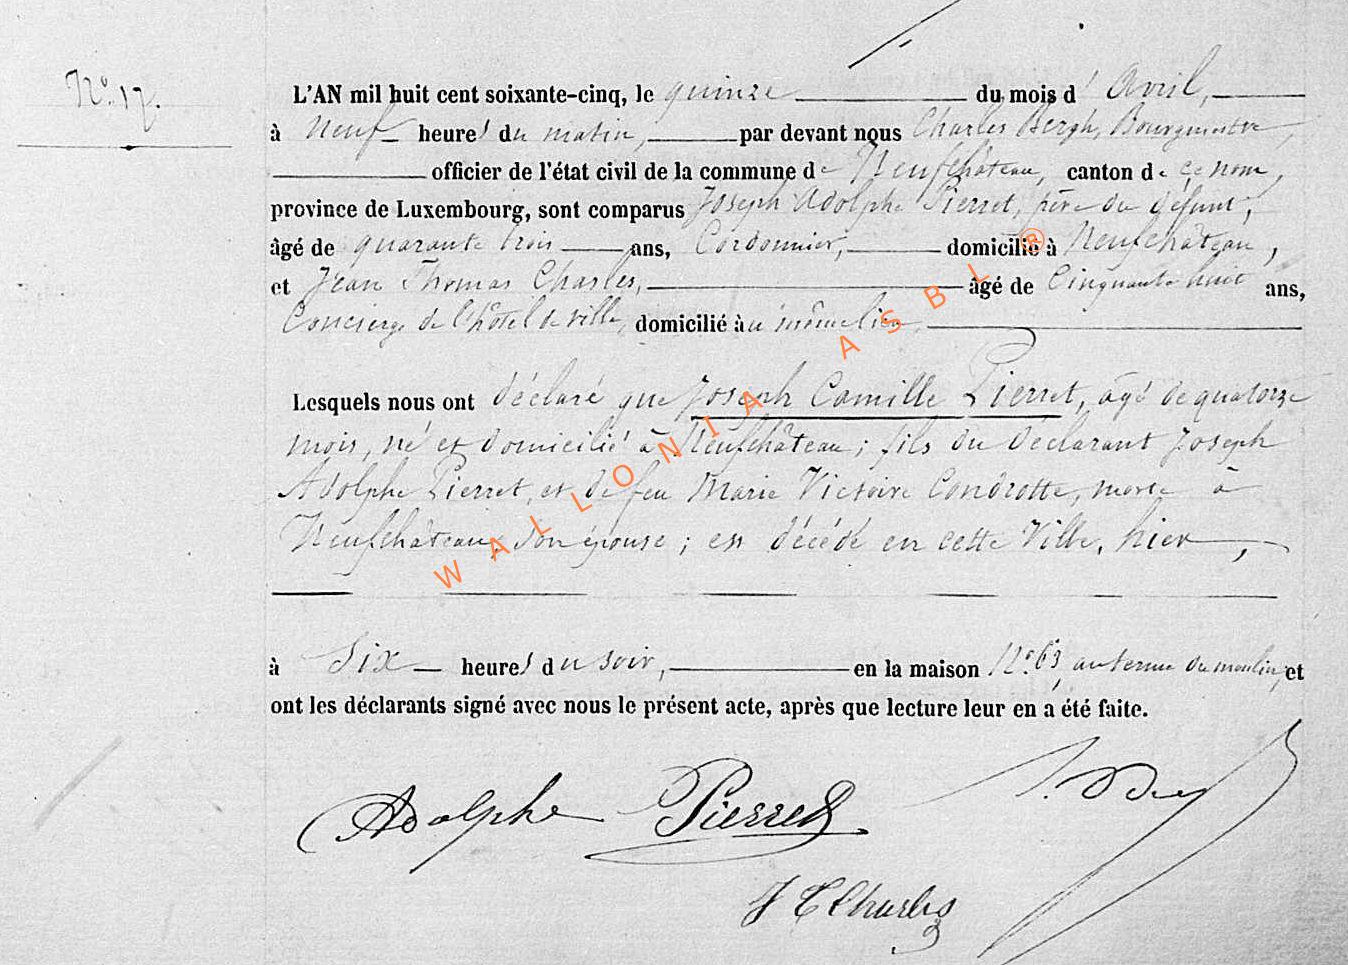 N.° 17.
L'AN mil huit cent soixante-cinq, le quinze du mois d'Avril,
à neuf heures du matin, par devant nous Charles Bergh, Bourgmestre,
officier de l'état civil de la commune de Neufchâteau, canton de ce nom,
province de Luxembourg, sont comparus Joseph Adolphe Pierret, père du défunt,
âgé de quarante trois ans, Cordonnier, domicilié à Neufchâteau,
et Jean Thomas Charles, âgé de Cinquante huit ans,
Concierge de l'hôtel de ville, domicilié au même lieu,
Lesquels nous ont déclaré que Joseph Camille Pierret, âgé de quatorze
mois, né et domicilié à Neufchâteau; fils du déclarant Joseph
Adolphe Pierret, et de feu Marie Victoire Condrotte, morte à
Neufchâteau, son épouse; est décédé en cette Ville, hier,
à Six heures du soir, en la maison N.° 63, au terme du moulin, et
ont les déclarants signé avec nous le présent acte, après que lecture leur en a été faite.
Adolphe Pierret
J T Charles
WALLONIA ASBL ®